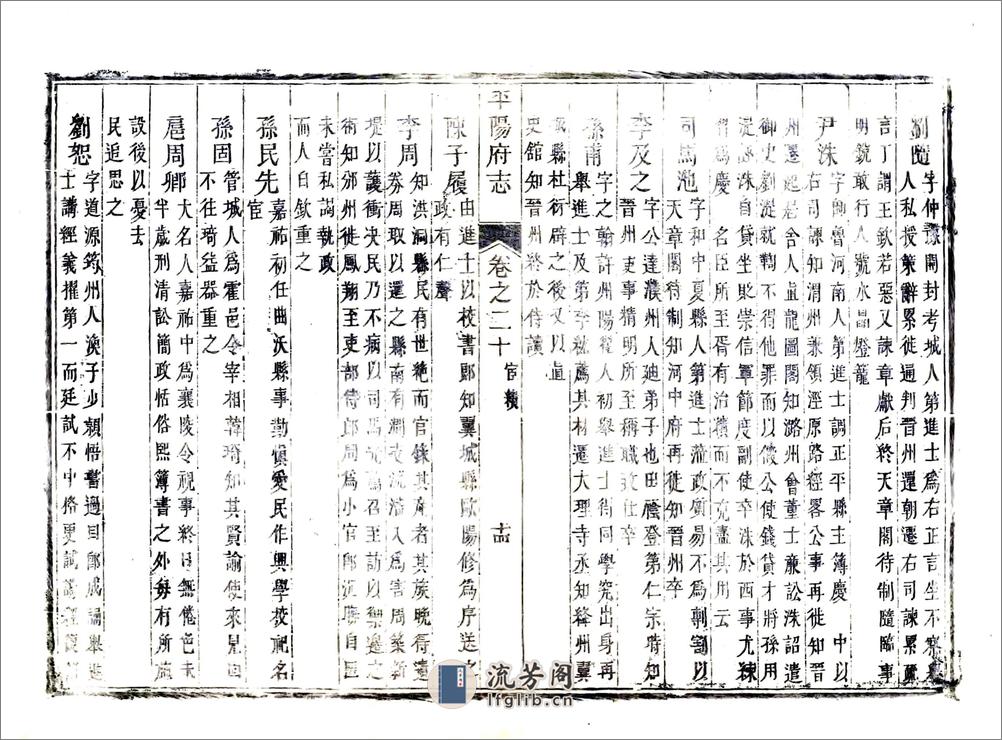 劉隨字仲豫開封考城人第進士爲右正言坐不察
人私授策辭累徙通判晉州還朝遷右司諫累疏
言丁謂王欽若惡又諫章獻后終天章閣待制隨臨事
明銳敢行人號水晶燈籠
尹洙字師魯河南人第進士調正平縣主簿慶 中以
右司諫知渭州兼領涇原路經畧公事再徙知晉
州遷起居舍人直龍圖閣知潞州會董士廉訟洙詔遣
御史劉湜就鞫不得他罪而以僚公使錢貸才將孫用
湜詠洙自貸坐貶崇信軍節度副使卒洙於西事尤練
習爲慶 名臣所至者有治績而不克盡其用云
司馬池字和中夏縣人第進士涖政簡易不爲
天章閣待制知河中府再徙知晉州卒
李及之字公達濮州人廸弟子也由廕登第仁宗時知
晉州吏事精明所至稱職致仕卒
孫甫字之翰許州陽翟人初舉進士得同學究出身再
舉進士及第李紘薦其材遷大理寺丞知絳州翼
城縣杜衍辟之後又以直
史館知晉州終於侍讀
平陽府志 卷之二十 宦績 十四
陳子履由進士以校書郎知翼城縣歐陽修爲序送之
政有仁聲
李周知洪洞縣民有世絶而官錄其產者其族晚得遺
券周取以還之縣南有澗夜流溢入爲害周築新
堤以護衝決民乃不病以司馬光薦召至訪以禦邊之
術知邠州徙鳳翔至吏部侍郎周爲小官郎沉晦自匿
未嘗私謁執政
而人自欽重之
孫民先嘉祐初任曲沃縣事勤愼愛民作興學校祀名
宦
孫固管城人爲霍邑令宰相韓琦知其賢諭使來見固
不往琦益器重之
扈周卿大名人嘉祐中爲襄陵令視事終日無倦色未
半歲刑清訟簡政恬俗熙簿書之外毎有所施
設後以憂去
民追思之
劉恕字道源筠州人渙子少穎悟書過目郎成誦舉進
士講經義擢第一而廷試不中格更試